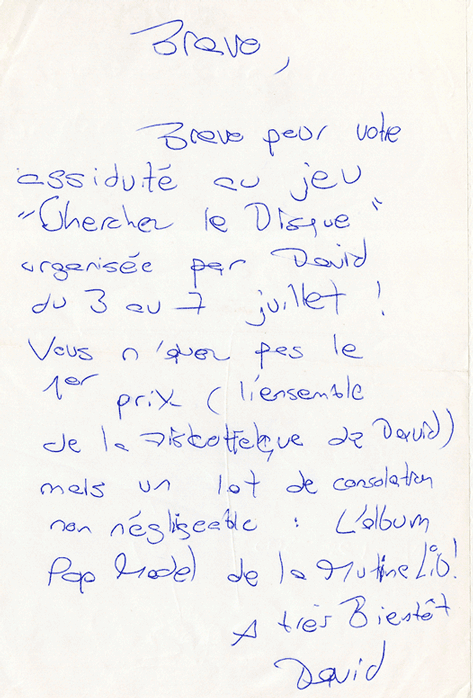 Bravo,
Bravo pour votre
assiduité au jeu
"Chercher le Disque"
organisée par David
du 3 au 7 juillet !
Vous n'avez pas le
1er prix (l'ensemble
de la Discothèque de David)
mais un lot de consolation
non négligeable : L'album
Pop Model de la Mutine Lio!
A très Bientôt
David